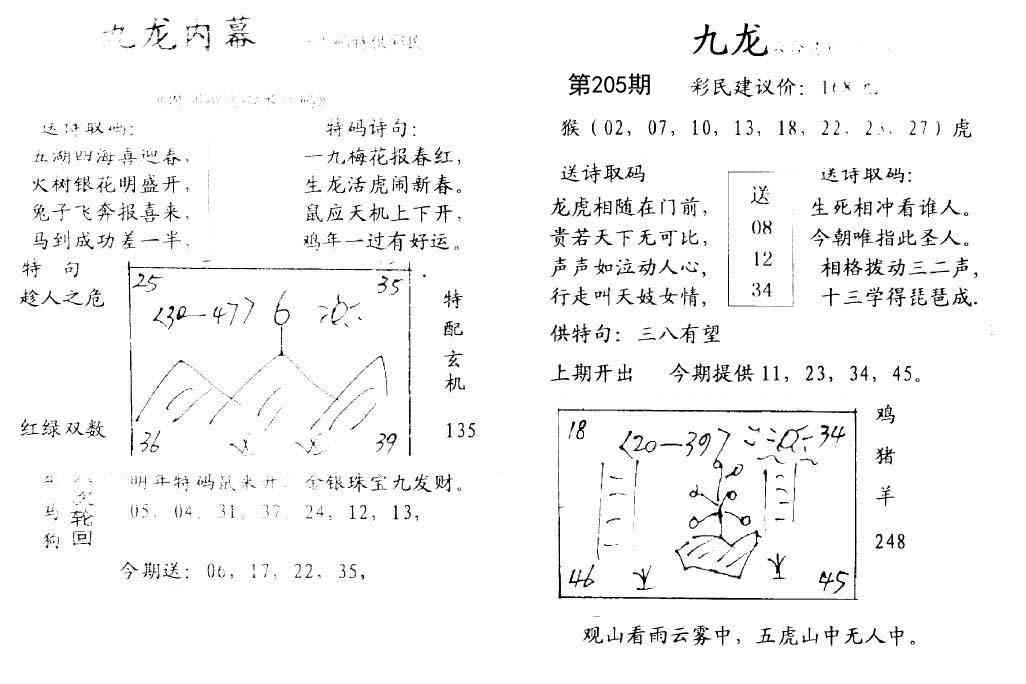 九龙内幕
送诗取码：
五湖四海喜迎春，
火树银花明盛开，
兔子飞奔报喜来，
马到成功差一半，
特码诗句：
一九梅花报春红，
生龙活虎闹新春。
鼠应天机上下开，
鸡年一过有好运。
特 句
趁人之危
红绿双数
25
35
<30-47> 6
36
39
特
配
玄
机
135
明年特码鼠来开，金银珠宝九发财。
马
狗
轮
回
05，04，31，37，24，12，13，
今期送：06，17，22，35，
九龙
第205期
彩民建议价：
猴（02，07，10，13，18，22，23，27）虎
送诗取码
龙虎相随在门前，
贵若天下无可比，
声声如泣动人心，
行走叫天妓女情，
送
08
12
34
送诗取码：
生死相冲看谁人。
今朝唯指此圣人。
相格拨动三二声，
十三学得琵琶成.
供特句：三八有望
上期开出 今期提供11，23，34，45。
18
<20-39>
34
46
45
鸡
猪
羊
248
观山看雨云雾中，五虎山中无人中。